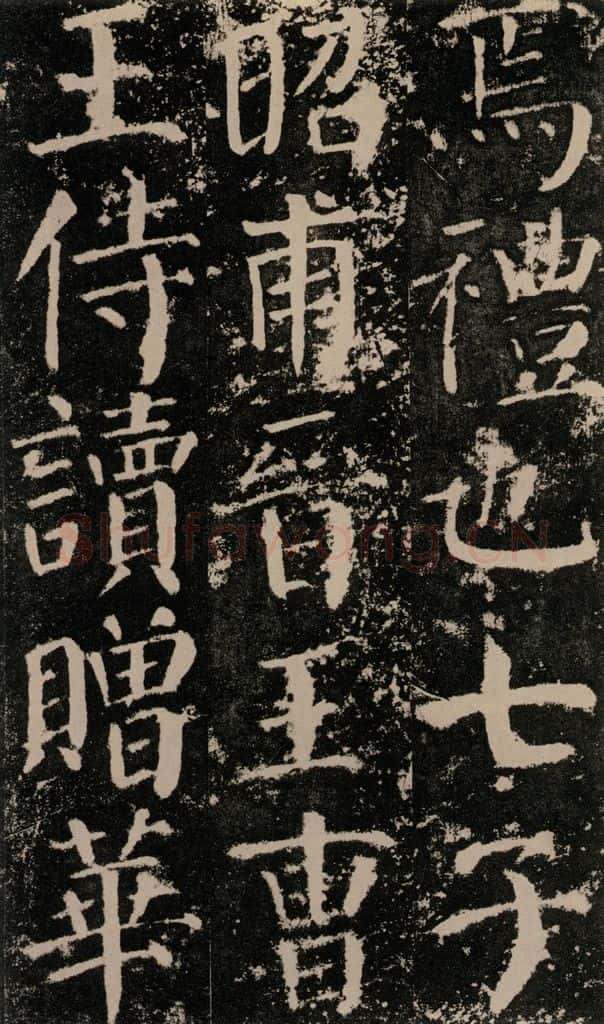 焉禮也七子
昭甫晉王曹
王侍讀贈華
shufawang.CN